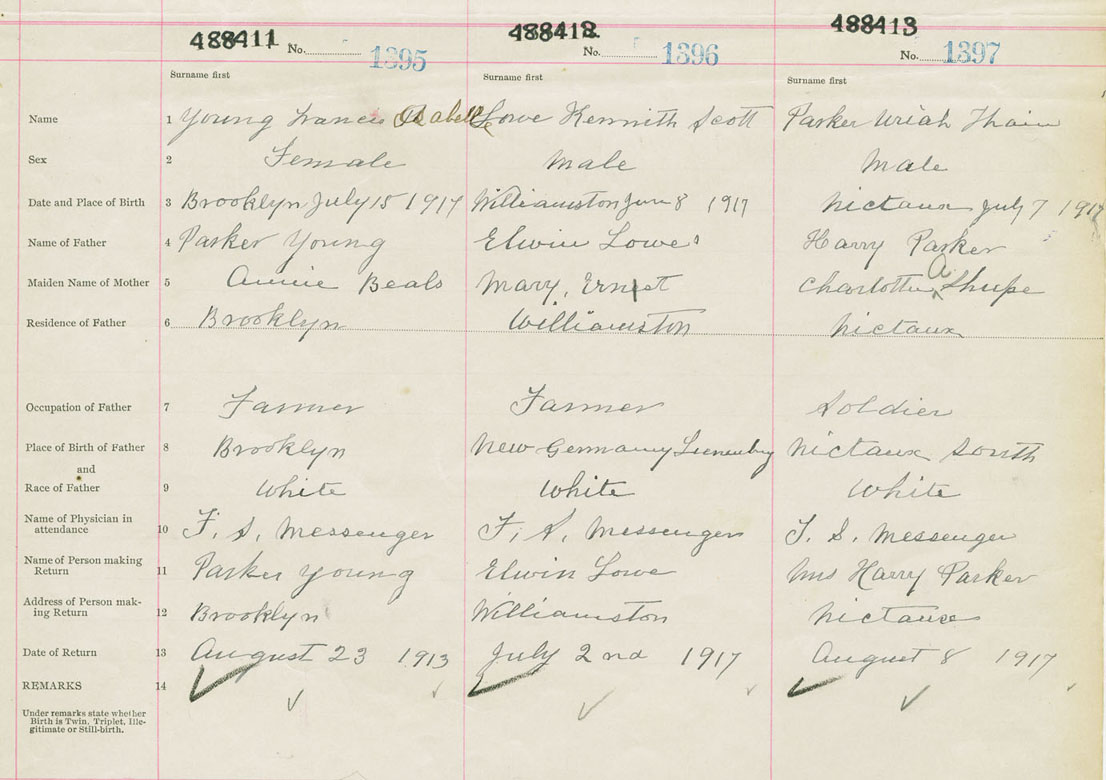 488411 488412 488413
No. 1395 No. 1396 No. 1397
Surname first Surname first Surname first
Name 1 Young Frances Isabelle Lowe Kennith Scott Parker Uriah Thain
Sex 2 Female Male Male
Date and Place of Birth 3 Brooklyn July 15 1917 Williamston June 8 1917 Nictaux July 7 1917
Name of Father 4 Parker Young Elwin Lowe Harry Parker
Maiden Name of Mother 5 Annie Beals Mary Ernst Charlotte A Shupe
Residence of Father 6 Brooklyn Williamston Nictaux
Occupation of Father 7 Farmer Farmer Soldier
Place of Birth of Father 8 Brooklyn New Germany Lunenburg Nictaux South
and
Race of Father 9 White White White
Name of Physician in
attendance 10 F. S. Messenger F. S. Messenger F. S. Messenger
Name of Person making
Return 11 Parker Young Elwin Lowe Mrs Harry Parker
Address of Person mak-
ing Return 12 Brooklyn Williamston Nictaux
Date of Return 13 August 23 1913 July 2nd 1917 August 8 1917
REMARKS 14
Under remarks state whether
Birth is Twin, Triplet, Ille-
gitimate or Still-birth.